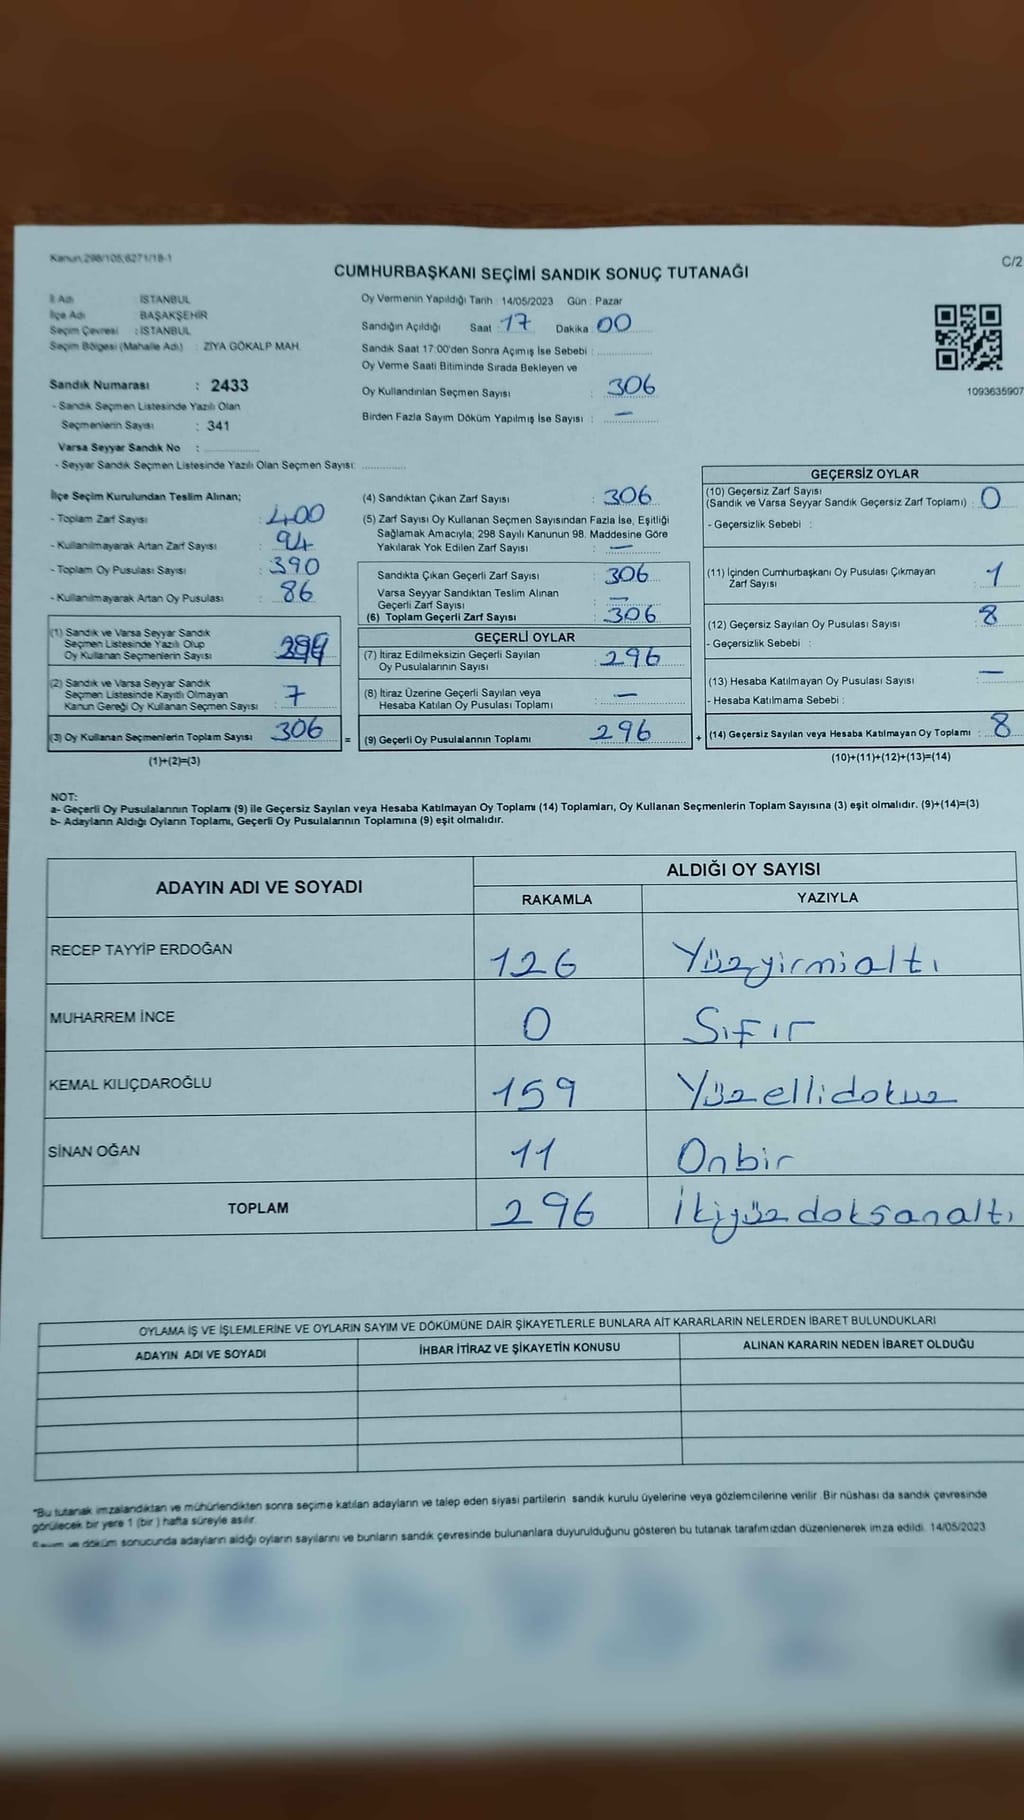 Kanun:298/105;6271/18-1
C/2
CUMHURBAŞKANI SEÇİMİ SANDIK SONUÇ TUTANAĞI
İl Adı : İSTANBUL
İlçe Adı : BAŞAKŞEHİR
Seçim Çevresi : İSTANBUL
Seçim Bölgesi (Mahalle Adı) : ZİYA GÖKALP MAH.
Sandık Numarası : 2433
- Sandık Seçmen Listesinde Yazılı Olan
Seçmenlerin Sayısı : 341
Varsa Seyyar Sandık No :
- Seyyar Sandık Seçmen Listesinde Yazılı Olan Seçmen Sayısı:
Oy Vermenin Yapıldığı Tarih : 14/05/2023 Gün : Pazar
Sandığın Açıldığı Saat : 17 Dakika 00
Sandık Saat 17:00'den Sonra Açımış İse Sebebi :
Oy Verme Saati Bitiminde Sırada Bekleyen ve
Oy Kullandırılan Seçmen Sayısı : 306
Birden Fazla Sayım Döküm Yapılmış İse Sayısı : —
1093635907
İlçe Seçim Kurulundan Teslim Alınan;
- Toplam Zarf Sayısı : 400
- Kullanılmayarak Artan Zarf Sayısı : 94
- Toplam Oy Pusulası Sayısı : 390
- Kullanılmayarak Artan Oy Pusulası : 86
(1) Sandık ve Varsa Seyyar Sandık
Seçmen Listesinde Yazılı Olup
Oy Kullanan Seçmenlerin Sayısı
(2) Sandık ve Varsa Seyyar Sandık
Seçmen Listesinde Kayıtlı Olmayan
Kanun Gereği Oy Kullanan Seçmen Sayısı : 7
(3) Oy Kullanan Seçmenlerin Toplam Sayısı 306
(1)+(2)=(3)
=
(4) Sandıktan Çıkan Zarf Sayısı : 306
(5) Zarf Sayısı Oy Kullanan Seçmen Sayısından Fazla İse, Eşitliği
Sağlamak Amacıyla; 298 Sayılı Kanunun 98. Maddesine Göre
Yakılarak Yok Edilen Zarf Sayısı : —
Sandıkta Çıkan Geçerli Zarf Sayısı : 306
Varsa Seyyar Sandıktan Teslim Alınan
Geçerli Zarf Sayısı : —
(6) Toplam Geçerli Zarf Sayısı : 306
GEÇERLİ OYLAR
(7) İtiraz Edilmeksizin Geçerli Sayılan
Oy Pusulalarının Sayısı : 296
(8) İtiraz Üzerine Geçerli Sayılan veya
Hesaba Katılan Oy Pusulası Toplamı : —
(9) Geçerli Oy Pusulalarının Toplamı 296
+
GEÇERSİZ OYLAR
(10) Geçersiz Zarf Sayısı
(Sandık ve Varsa Seyyar Sandık Geçersiz Zarf Toplamı) : 0
- Geçersizlik Sebebi :
(11) İçinden Cumhurbaşkanı Oy Pusulası Çıkmayan
Zarf Sayısı : 1
(12) Geçersiz Sayılan Oy Pusulası Sayısı : 8
- Geçersizlik Sebebi :
(13) Hesaba Katılmayan Oy Pusulası Sayısı : —
- Hesaba Katılmama Sebebi :
(14) Geçersiz Sayılan veya Hesaba Katılmayan Oy Toplamı : 8
(10)+(11)+(12)+(13)=(14)
NOT:
a- Geçerli Oy Pusulalarının Toplamı (9) ile Geçersiz Sayılan veya Hesaba Katılmayan Oy Toplamı (14) Toplamları, Oy Kullanan Seçmenlerin Toplam Sayısına (3) eşit olmalıdır. (9)+(14)=(3)
b- Adayların Aldığı Oyların Toplamı, Geçerli Oy Pusulalarının Toplamına (9) eşit olmalıdır.
ADAYIN ADI VE SOYADI
ALDIĞI OY SAYISI
RAKAMLA YAZIYLA
RECEP TAYYİP ERDOĞAN 126 Yüzyirmialtı
MUHARREM İNCE 0 Sıfır
KEMAL KILIÇDAROĞLU 159 Yüzellidokuz
SİNAN OĞAN 11 Onbir
TOPLAM 296 İkiyüzdoksanaltı
OYLAMA İŞ VE İŞLEMLERİNE VE OYLARIN SAYIM VE DÖKÜMÜNE DAİR ŞİKAYETLERLE BUNLARA AİT KARARLARIN NELERDEN İBARET BULUNDUKLARI
ADAYIN ADI VE SOYADI İHBAR İTİRAZ VE ŞİKAYETİN KONUSU ALINAN KARARIN NEDEN İBARET OLDUĞU
*Bu tutanak imzalandıktan ve mühürlendikten sonra seçime katılan adayların ve talep eden siyasi partilerin sandık kurulu üyelerine veya gözlemcilerine verilir. Bir nüshası da sandık çevresinde
görülecek bir yere 1 (bir) hafta süreyle asılır.
Sayım ve döküm sonucunda adayların aldığı oyların sayılarını ve bunların sandık çevresinde bulunanlara duyurulduğunu gösteren bu tutanak tarafımızdan düzenlenerek imza edildi. 14/05/2023